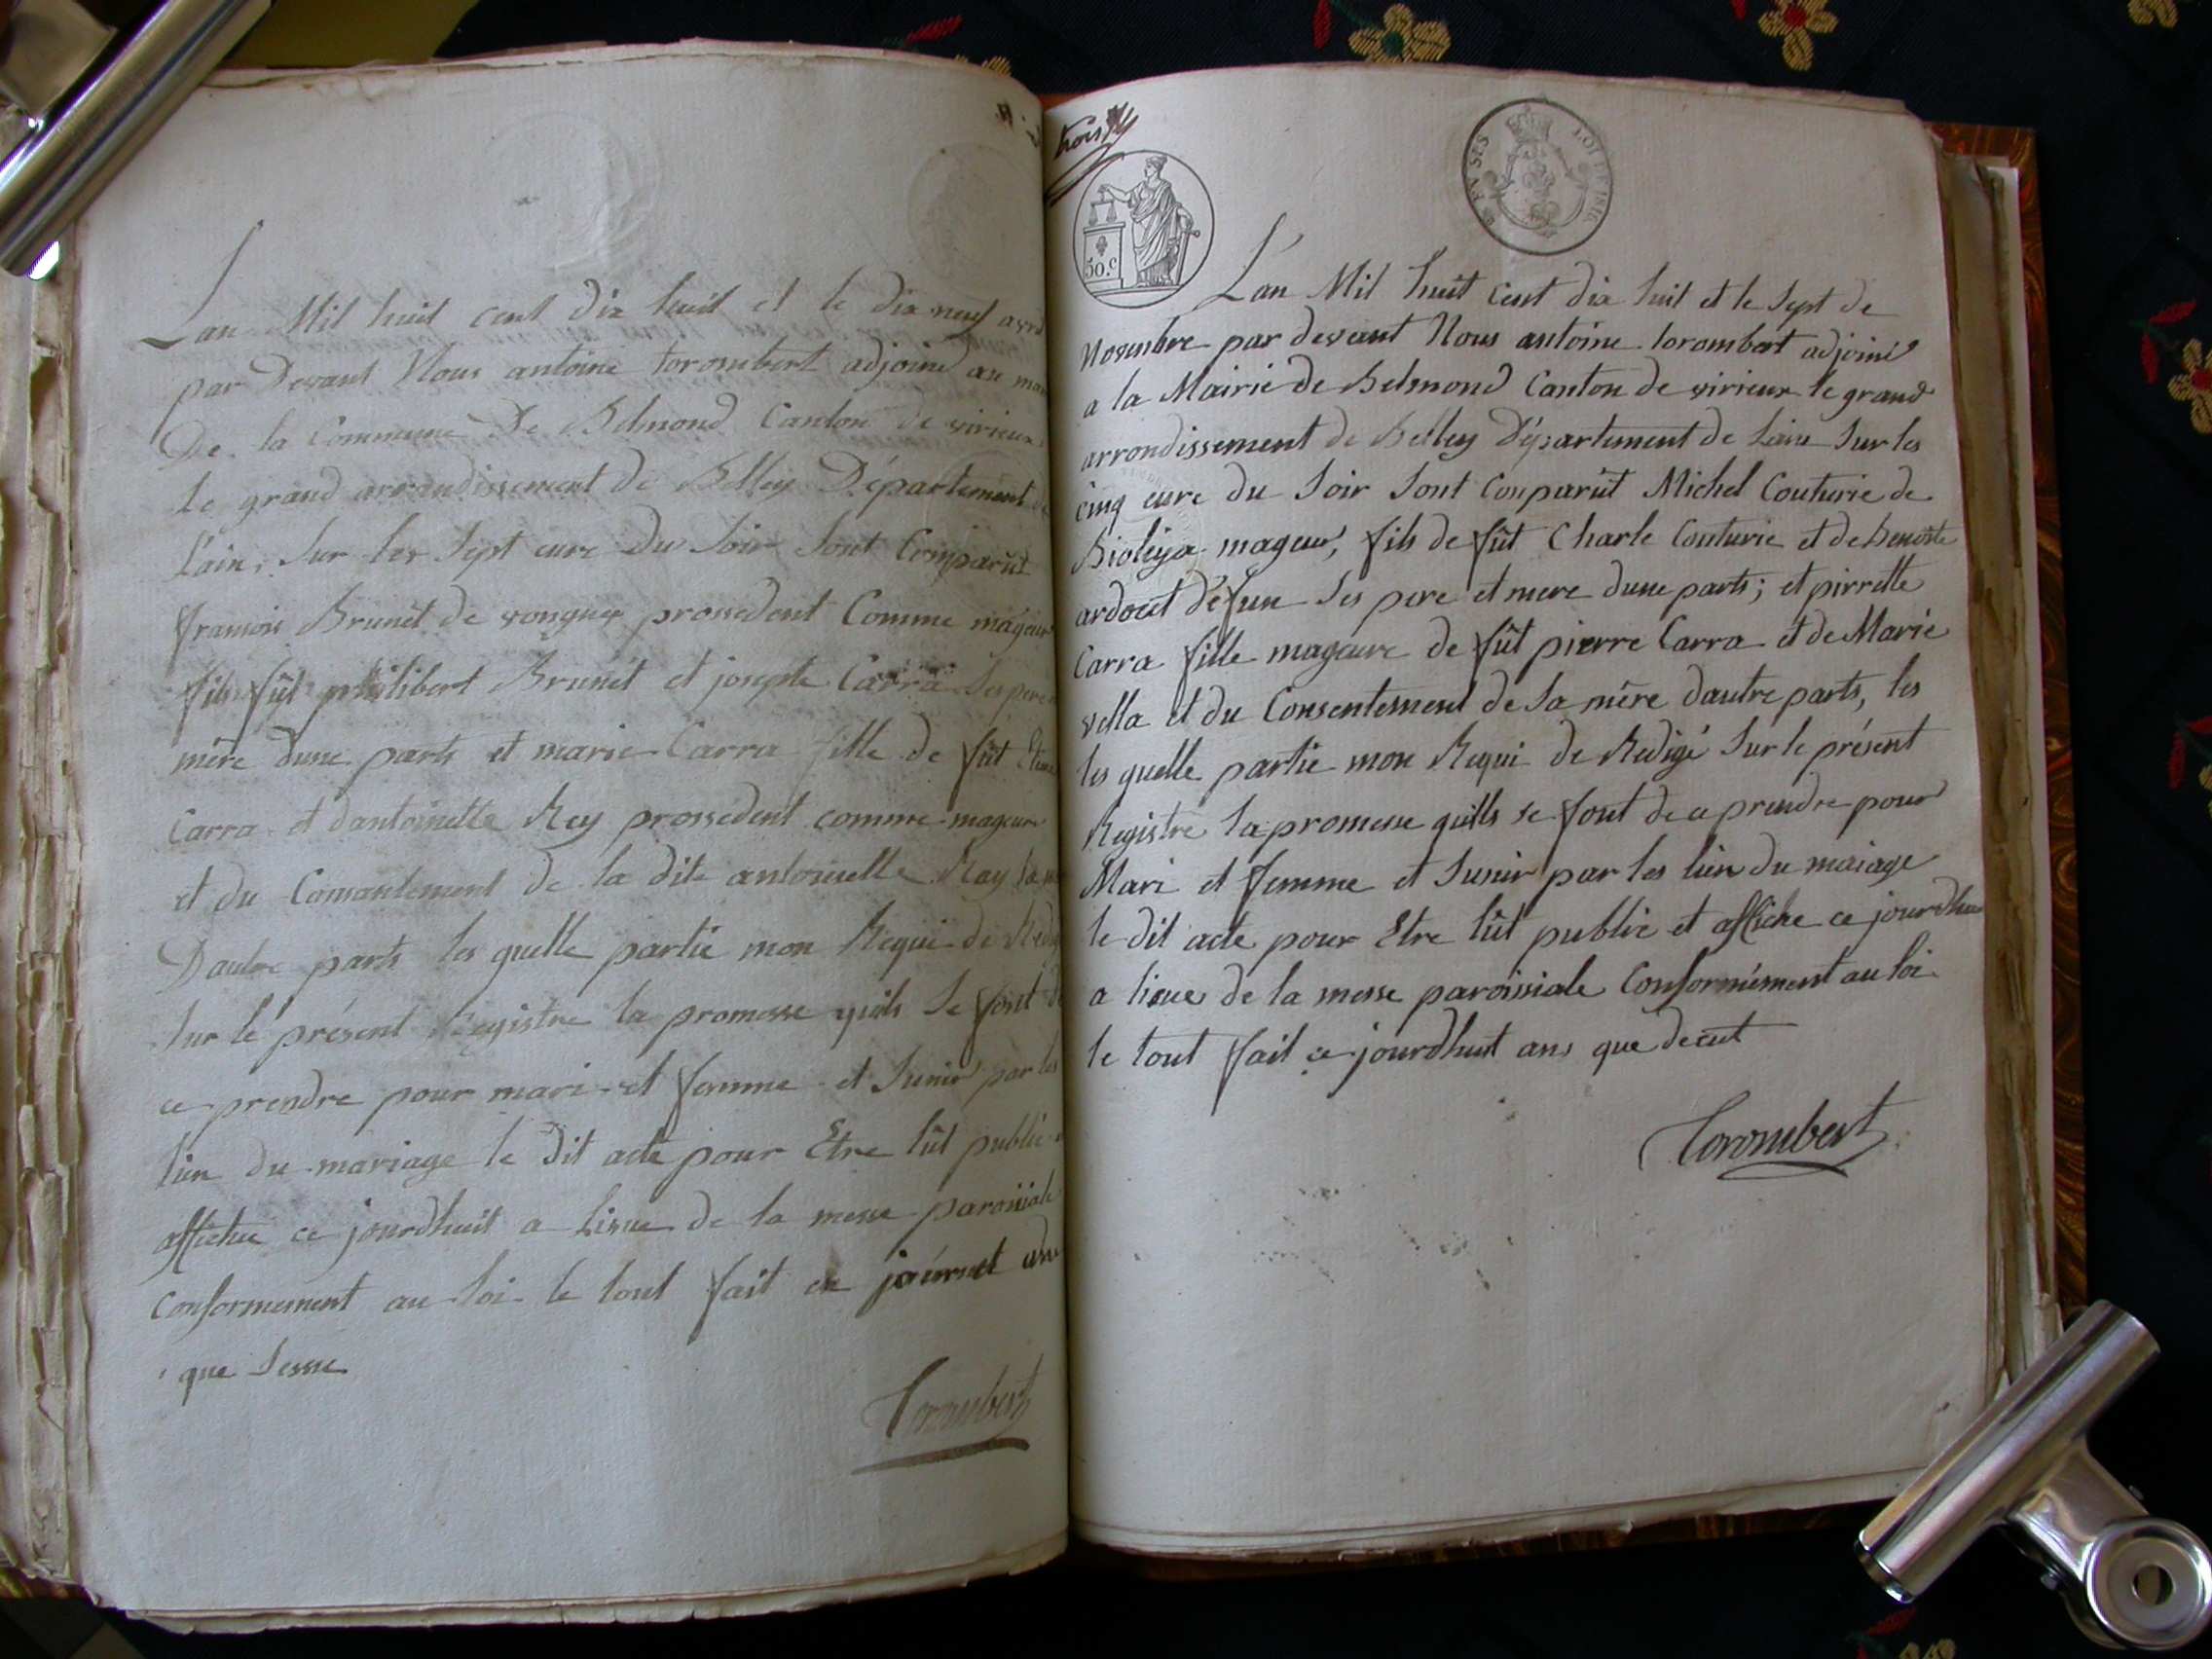 Lan Mil huit cent dix huit et le dix neuf avril
par Devant Nous antoine torombert adjoind au
De la Commune De Belmond Canton de virieux
le grand arrondissement de Belley Département
L'ain, Sur les Sept eure Du Soir Sont Comparût
fransois Brunet de vongnes prossedent Comme mageur
fils fût philibert Brunet et josepte Carra Ses pere
mère dune parts et marie Carra fille de fût
Carra et dantoinette Rey prossedent comme mageure
et du Consantement de la dite antoinette Ray
Dautre parts les quelle partie mon Requi de
Sur le présent Registre la promesse quils Se font de
ce prendre pour mari et femme et Sunir par les
lien du mariage le dit acte pour Etre lût publie
affichie ce jourdhuit a Lisue de la messe paroissiale
Conformement au loi le tout fait ce an
que Sessue
Torombert
trois
50.c
L'an Mil huit Cent dix huit et le Sept de
Novembre par devant Nous antoine torombert adjoind
a la Mairie de Belmond Canton de virieux le grand
arrondissement de Belley Département de Lain Sur les
cinq eure du Soir Sont Comparût Michel Couturie de
Bioleya mageur, fils de fût Charle Couturie et de Benoite
ardoeit défun Ses pere et mere dune parts; et pirrette
Carra fille mageure de fût pierre Carra et de Marie
vella et du Consentement de Sa mère dautre parts, les
les quelle partie mon Requi de Redigé Sur le présent
Registre la promesse quills se font de ce prendre pour
Mari et femme et Sunir par les lien du maiage
le dit acte pour Etre lût publie et affiche ce jourdhui
a lisue de la messe paroissiale Conformément au loi
le tout fait ce jourdhuit ans que decut
Torombert